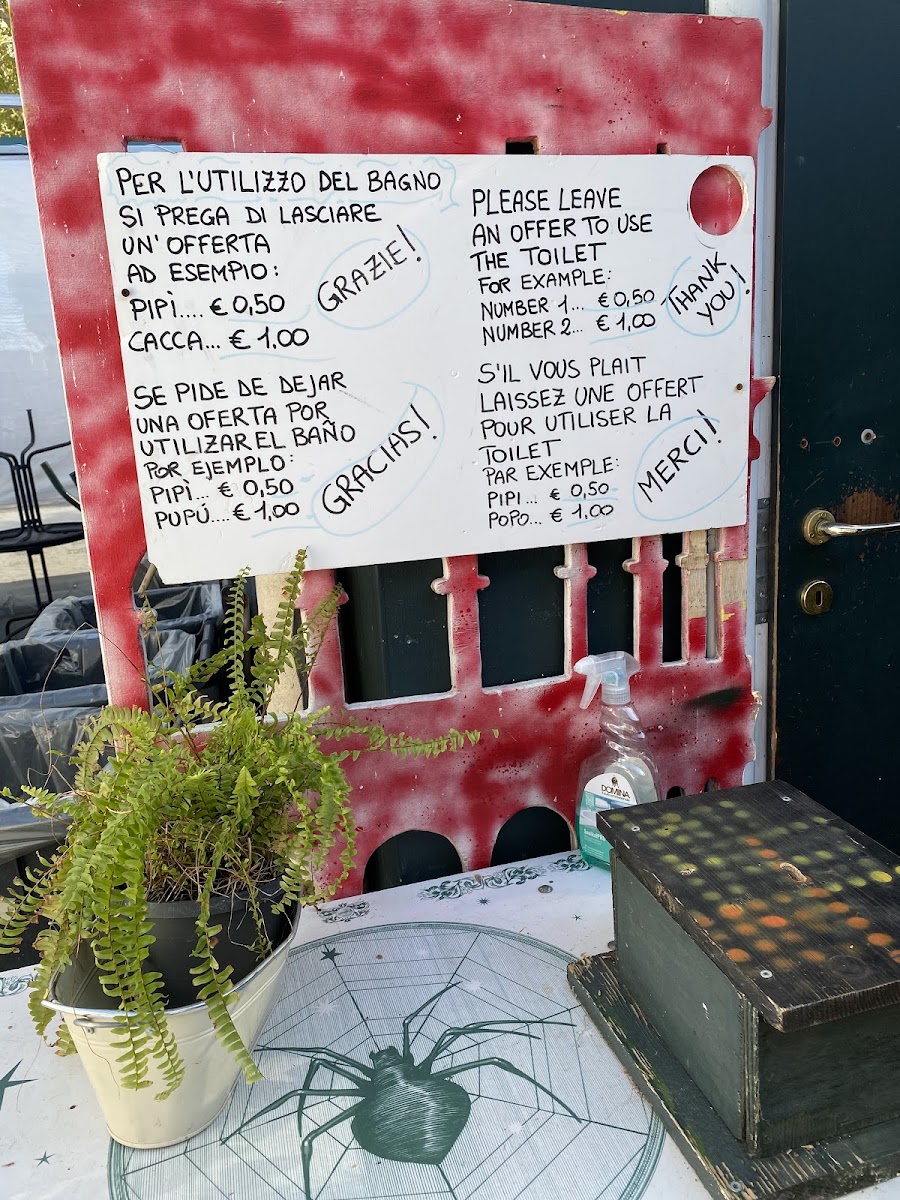 PER L'UTILIZZO DEL BAGNO
SI PREGA DI LASCIARE
UN'OFFERTA
AD ESEMPIO:
PIPÌ.... € 0,50
CACCA... € 1,00
GRAZIE!
PLEASE LEAVE
AN OFFER TO USE
THE TOILET
FOR EXAMPLE:
NUMBER 1... € 0,50
NUMBER 2... € 1,00
THANK
YOU!
SE PIDE DE DEJAR
UNA OFERTA POR
UTILIZAR EL BAÑO
POR EJEMPLO:
PIPÌ... € 0,50
PUPÚ.... € 1,00
GRACIAS!
S'IL VOUS PLAIT
LAISSEZ UNE OFFERT
POUR UTILISER LA
TOILET
PAR EXEMPLE:
PIPI... € 0,50
POPO... € 1,00
MERCI!
DOMINA